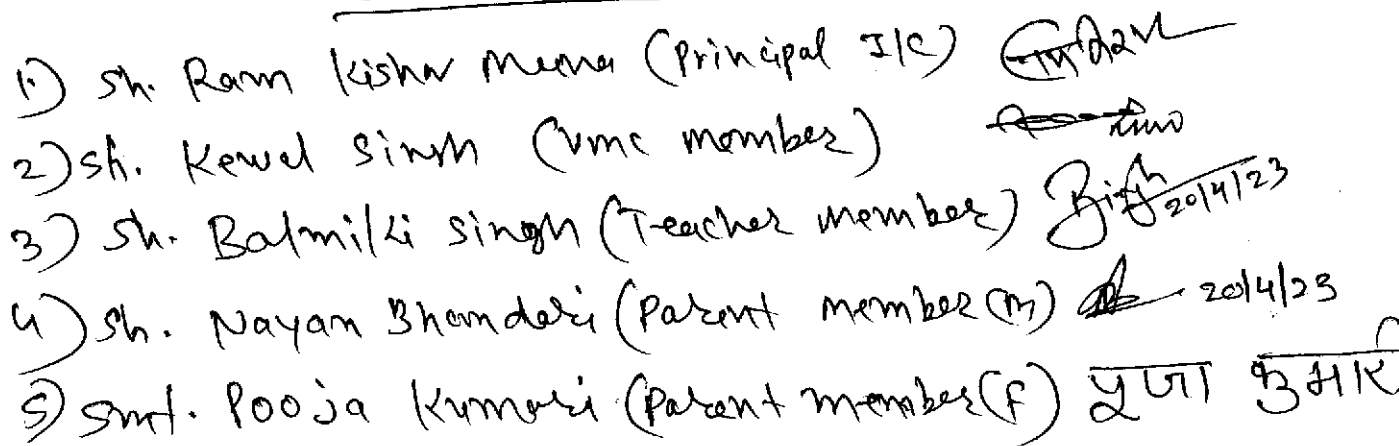 1) Sh. Ram Kishor Meena (Principal I/C)
2) Sh. Kewal Singh (VMC member)
3) Sh. Balmiki Singh (Teacher member) 20/4/23
4) Sh. Nayan Bhandari (Parent member (M) 20/4/23
5) Smt. Pooja Kumari (Parent member (F) पूजा कुमारी